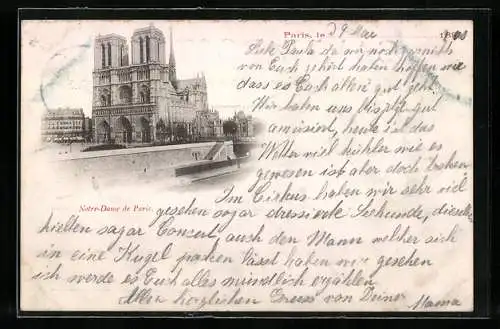 Paris, le 29 Mai 1900
Liebe Paula da wir noch nichts
von Euch gehört haben hoffen wir
dass es Euch allen gut geht.
Wir haben uns bisher gut
amüsiert, heute ist das
Wetter viel kühler wie es
gewesen ist aber doch trocken.
Im Cirkus haben wir sehr viel
Notre-Dame de Paris.
gesehen sogar dressierte Seehunde, dieselben
hielten sogar Concert auch den Mann welcher sich
in eine Kugel packen lässt haben wir gesehen
ich werde es Euch alles mündlich erzählen.
Allen herzlichen Gruss von Deiner
Mama